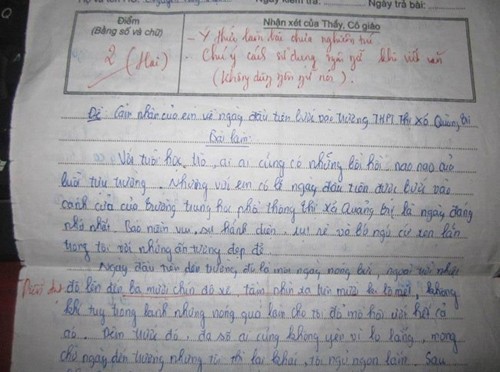 Ngày kiểm tra: Ngày trả bài:
Điểm
(Bằng số và chữ)
Nhận xét của Thầy, Cô giáo
2 (Hai)
- Ý thức làm bài chưa nghiêm túc
- Chú ý cách sử dụng ngôn ngữ khi viết văn
(Không dùng ngôn ngữ nói).
Đề: Cảm nhận của em về ngày đầu tiên bước vào trường THPT Thị Xã Quảng Trị
Bài làm:
Với tuổi học trò, ai ai cũng có những bồi hồi, nao nao của
buổi tựu trường. Nhưng với em có lẽ ngày đầu tiên được bước vào
cánh cửa của trường trung học phổ thông thị xã Quảng Trị là ngày đáng
nhớ nhất. Bao niềm vui, sự hãnh diện, rụt rè và bỡ ngỡ cứ xen lẫn
trong tôi với những ấn tượng đẹp đẽ.
Ngày đầu tiên đến trường, đó là một ngày nóng bức, ngoài trời nhiệt
độ lên đến ba mươi chín độ xê, tầm nhìn xa trên mười ki lô mét, không
khí tuy trong lành nhưng nóng quá làm cho tôi đổ mồ hôi ướt hết cả
áo. Đêm trước đó, đa số ai cũng không yên vì lo lắng, mong
chờ ngày đến trường nhưng tôi thì lại khác, tôi ngủ ngon lắm. Sau